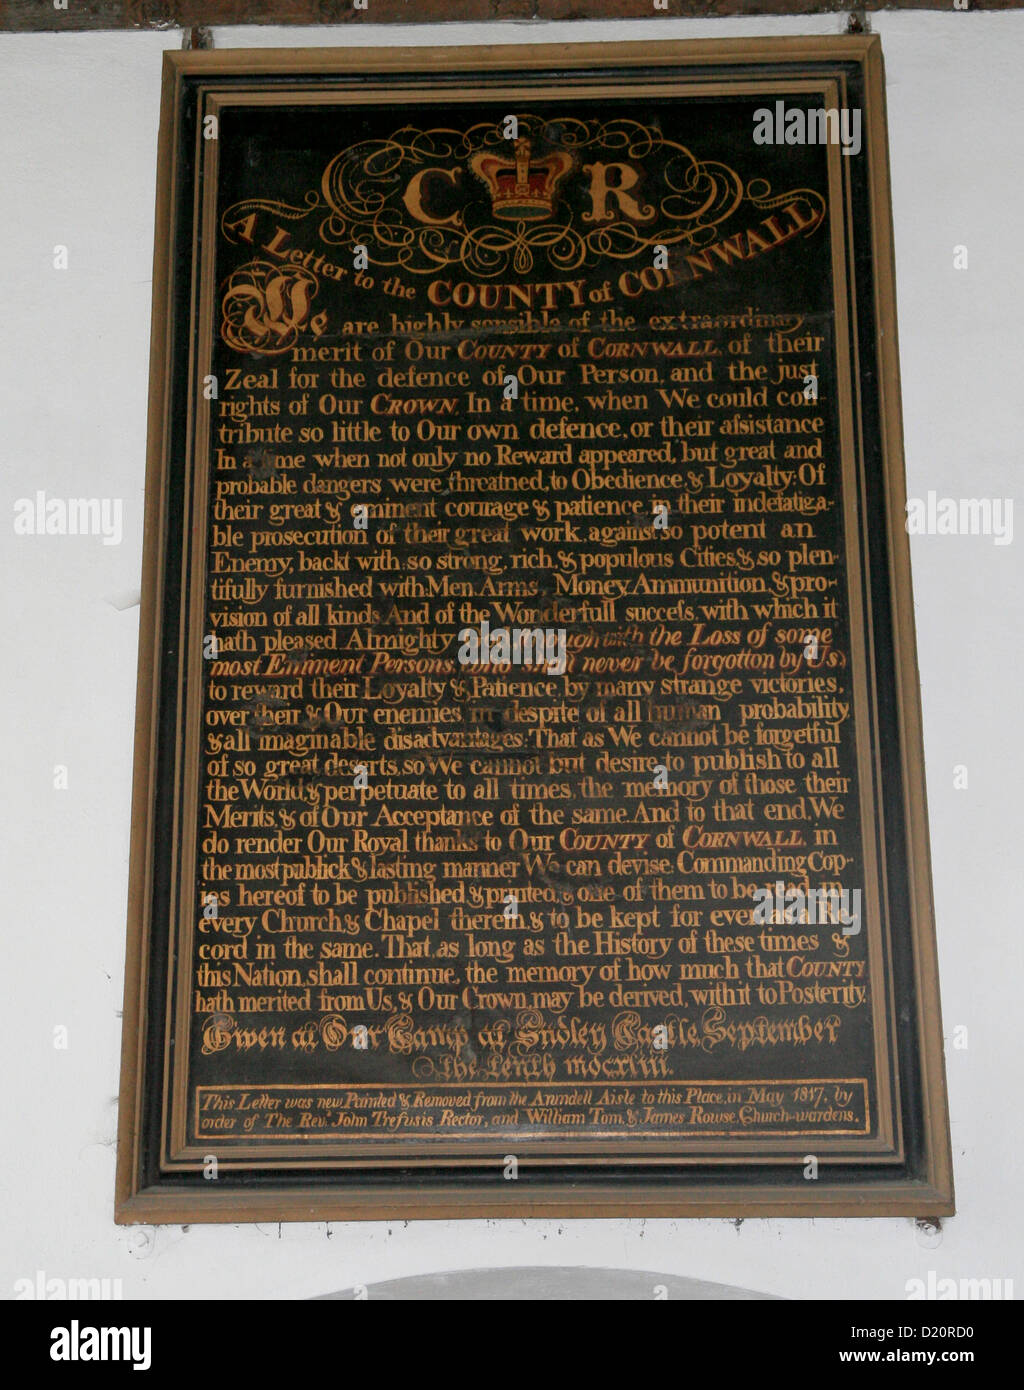 C R
A Letter to the COUNTY of CORNWALL
We are highly sensible of the extraordinary
merit of Our COUNTY of CORNWALL, of their
Zeal for the defence of Our Person, and the just
rights of Our CROWN, In a time, when We could con-
tribute so little to Our own defence, or their assistance
In a time when not only no Reward appeared, but great and
probable dangers were threatned, to Obedience, & Loyalty: Of
their great & eminent courage & patience, in their indefatiga-
ble prosecution of their great work, against so potent an
Enemy, backt with so strong, rich, & populous Cities, & so plen-
tifully furnished with Men, Arms Money, Ammunition, & pro-
vision of all kinds And of the Wonderfull success, with which it
hath pleased Almighty though with the Loss of some
most Eminent Persons, who shall never be forgotton by Us,
to reward their Loyalty & Patience, by many strange victories,
over their & Our enemies, in despite of all human probability,
& all imaginable disadvantages: That as We cannot be forgetful
of so great deserts, so We cannot but desire to publish to all
the World, & perpetuate to all times, the memory of those their
Merits, & of Our Acceptance of the same. And to that end, We
do render Our Royal thanks to Our COUNTY of CORNWALL, in
the most publick & lasting manner We can devise: Commanding Cop-
ies hereof to be published & printed, & one of them to be read in
every Church, & Chapel therein, & to be kept for ever, as a Re-
cord in the same. That, as long as the History of these times &
this Nation, shall continue, the memory of how much that COUNTY
hath merited from Us, & Our Crown, may be derived, with it to Posterity.
Given at Our Camp at Sudley Castle, September
the tenth MDCXLIII.
This Letter was new Painted & Removed from the Arundell Aisle to this Place, in May 1817, by
order of The Revd. John Trefusis Rector, and William Tom, & James Rowse, Church-wardens.
alamy
www.alamy.com
Image ID: D20RD0